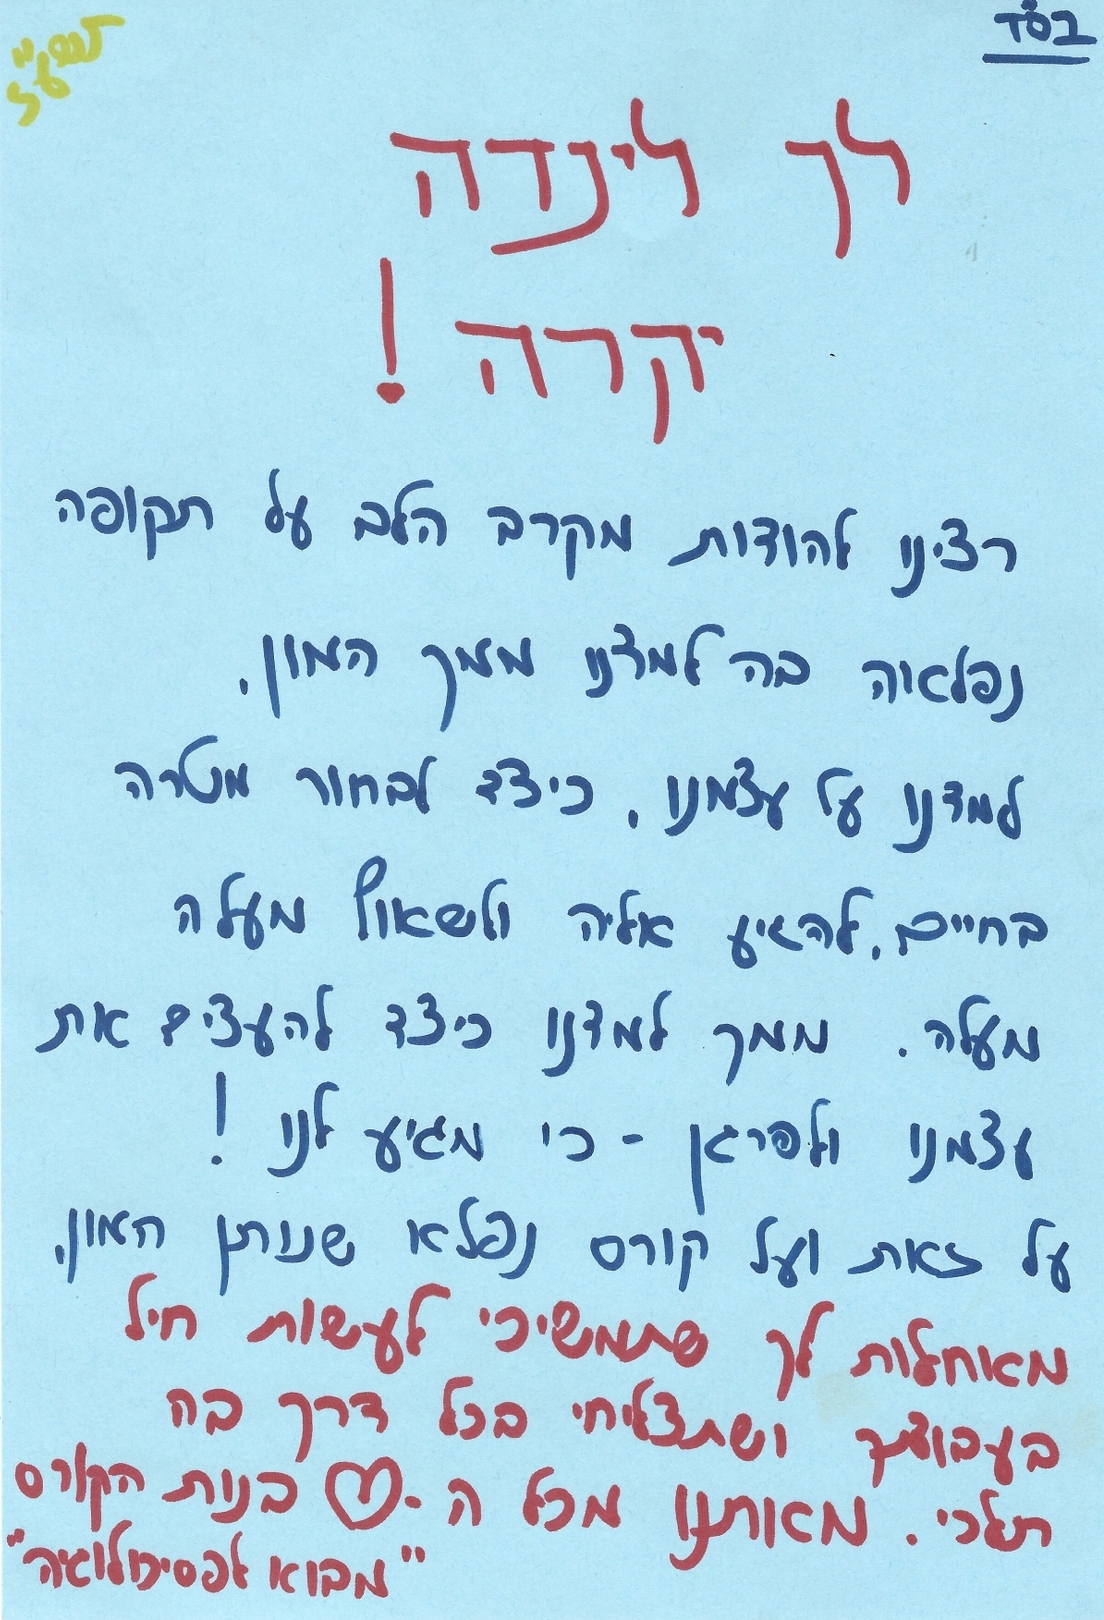 בס"ד
לך לינדה
יקרה!
רצינו להודות מקרב הלב על תקופה
נפלאה בה למדנו ממך המון.
למדנו על עצמנו, כיצד לבחור מטרה
בחיים, להגיע אליה ולשאוף מעלה
מעלה. ממך למדנו כיצד להעצים את
עצמנו ולפרגן - כי מגיע לנו!
על זאת ועל קורס נפלא שנותן המון,
מאוחלות לך שתמשיכי לעשות חיל
בעבודתך ושתצליחי בכל דרך בה
תלכי. מאיתנו מכל ה-♡ בנות הקורס
"מבוא לפסיכולוגיה"